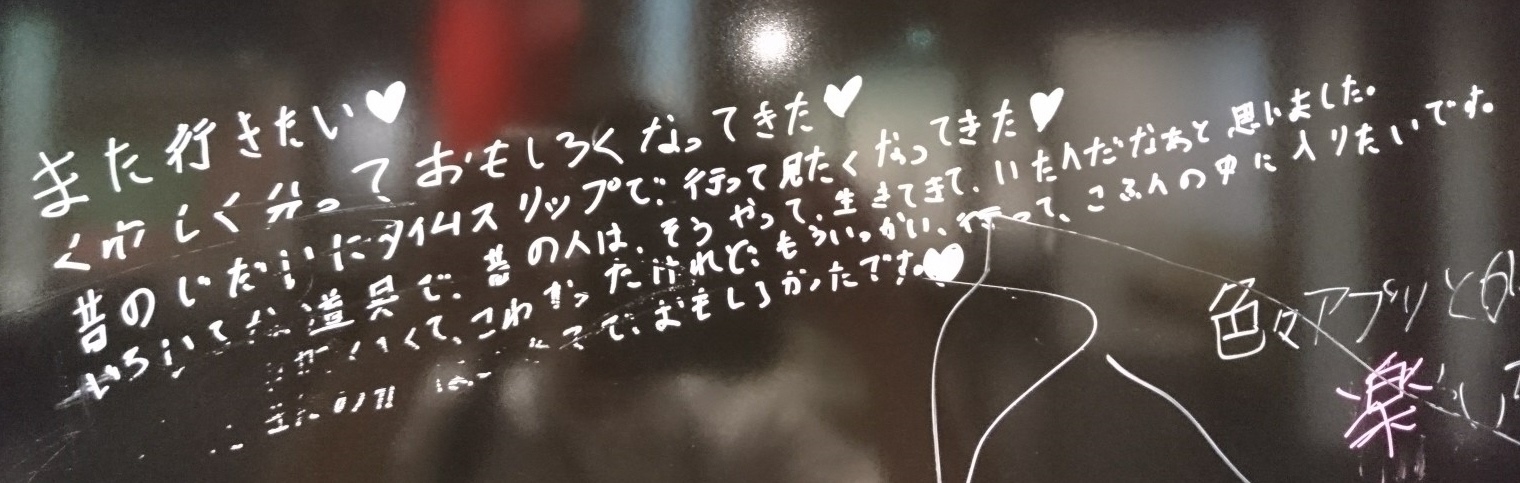 また行きたい♥
くわしく分っておもしろくなってきた♥
昔のじだいにタイムスリップで、行って見たくなってきた♥
いろいろな道具で、昔の人は、そうやって、生きてきて、いた人だなぁと思いました。
くて、こわかったけれど、もういっかい、行って、こふんの中に入りたいです。
で、おもしろかったです。♥
色々アプリとか
楽しい